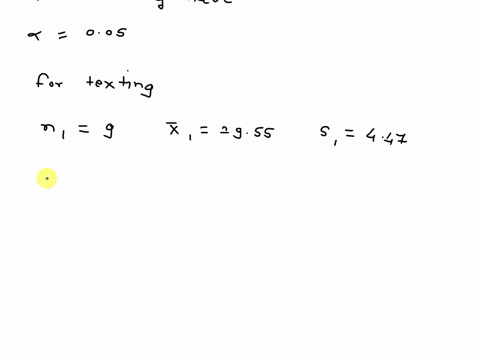 α = 0.05
for texting
n₁ = 9 x̄₁ = 29.55 s₁ = 4.47